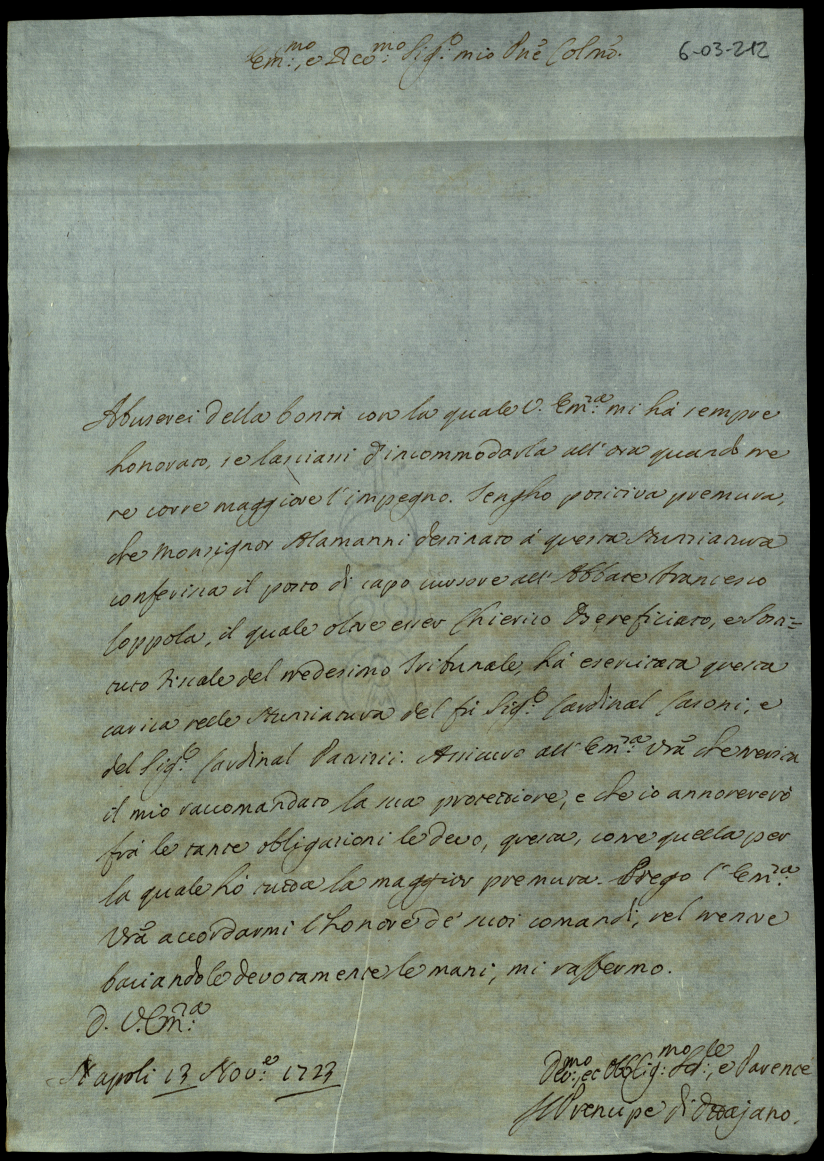 Em:mo, e Reu:mo Sig:e mio Pne Colmo.
6-03-212
Abuserei della bontà con la quale V. Em:za mi hà sempre
honorato, se lasciassi d'incommodarla all'ora quando me
ne corre maggiore l'impegno. Tengho positiva premura,
che Monsignor Alamanni destinato à questa Nunziatura
conferisca il posto di capo cursore all'Abbate Francesco
Coppola, il quale oltre esser Chierico Beneficiato, e Sosti=
tuto Fiscale del medesimo Tribunale, hà esercitata questa
carica nelle Nunziatura del fù Sig:e Cardinal Casoni, e
del Sig:e Cardinal Patrizi. Assicuro all'Em:za Vra che merita
il mio raccomandato la sua protettione, e che io annovererò
frà le tante obligazioni le devo, questa, come quella per
la quale hò tutta la maggior premura. Prego l'Em:za
Vra accordarmi l'honore de' suoi comandi, nel mentre
baciandole devotamente le mani, mi raffermo.
D. V. Em:za
Napoli 13 Nov:e 1723
Deu:mo, et Obblig:mo Ser:le, e Parente
Il Prencipe di Ottajano.